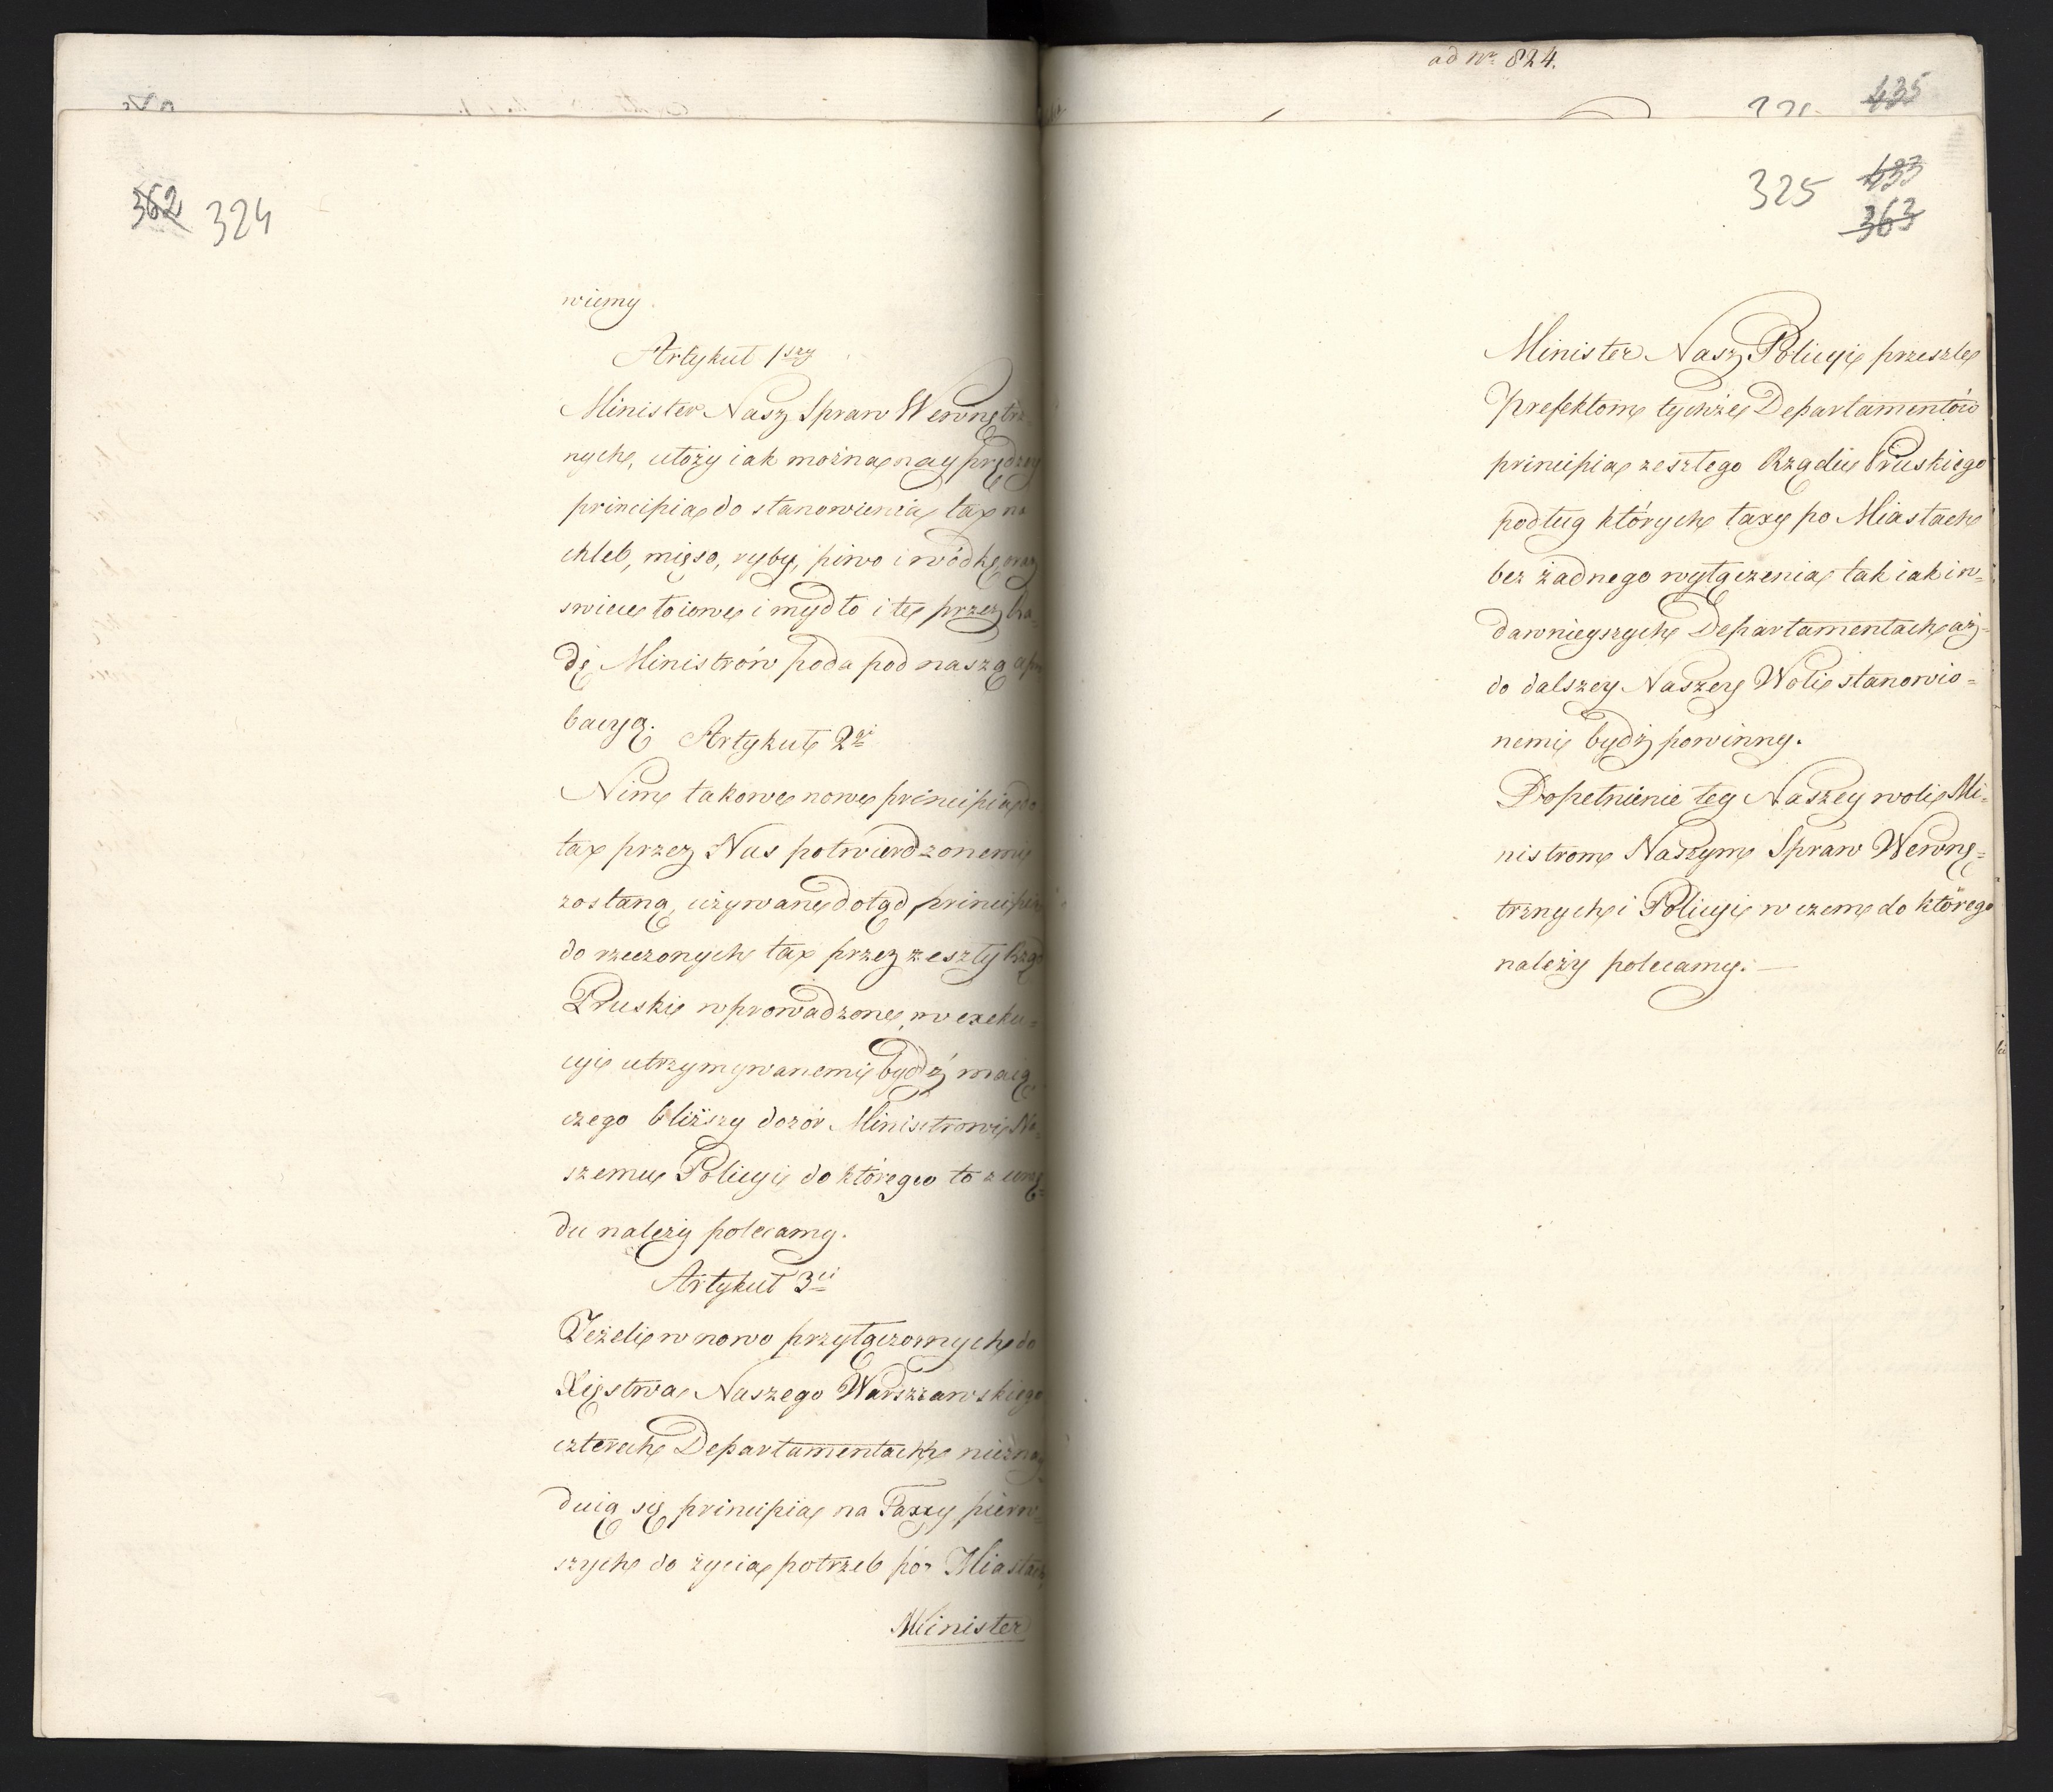 362 324
wiemy.
Artykuł 1szy
Minister Nasz Spraw Wewnętrz-
nych, ułoży iak można nayprędzey
principia do stanowienia tax na
chleb, mięso, ryby, piwo i wódkę, oraz
swiece łoiowe i mydło i te przez Ra-
dę Ministrów poda pod naszą apro
bacyą.
Artykuł 2gi
Nim takowe nowe principia do
tax przez Nas potwierdzonemi
zostaną, używane dotąd principia
do rzeczonych tax przez zeszły Rząd
Pruski wprowadzone, w exeku-
cyi utrzymywanemi bydź maią
czego bliższy dozór Ministrowi Na-
szemu Policyi do którego to z urzę-
du należy polecamy.
Artykuł 3ci
Jeżeli w nowo przyłączonych do
Xięstwa Naszego Warszawskiego
czterech Departamentach nieznay
duią się principia na Taxy pierw-
szych do życia potrzeb po Miastach
Minister
ad Nr 824.
435
325 433
363
Minister Nasz Policyi przeszle
Prefektom tychże Departamentów
principia zeszłego Rządu Pruskiego
podług których taxy po Miastach
bez żadnego wyłączenia tak iak in-
dawnieyszych Departamentach aż-
do dalszey Naszey Woli stanowio-
nemi bydź powinny.
Dopełnienie tey Naszey woli Mi-
nistrom Naszym Spraw Wewnę-
trznych i Policyi w czem do którego
należy polecamy. —